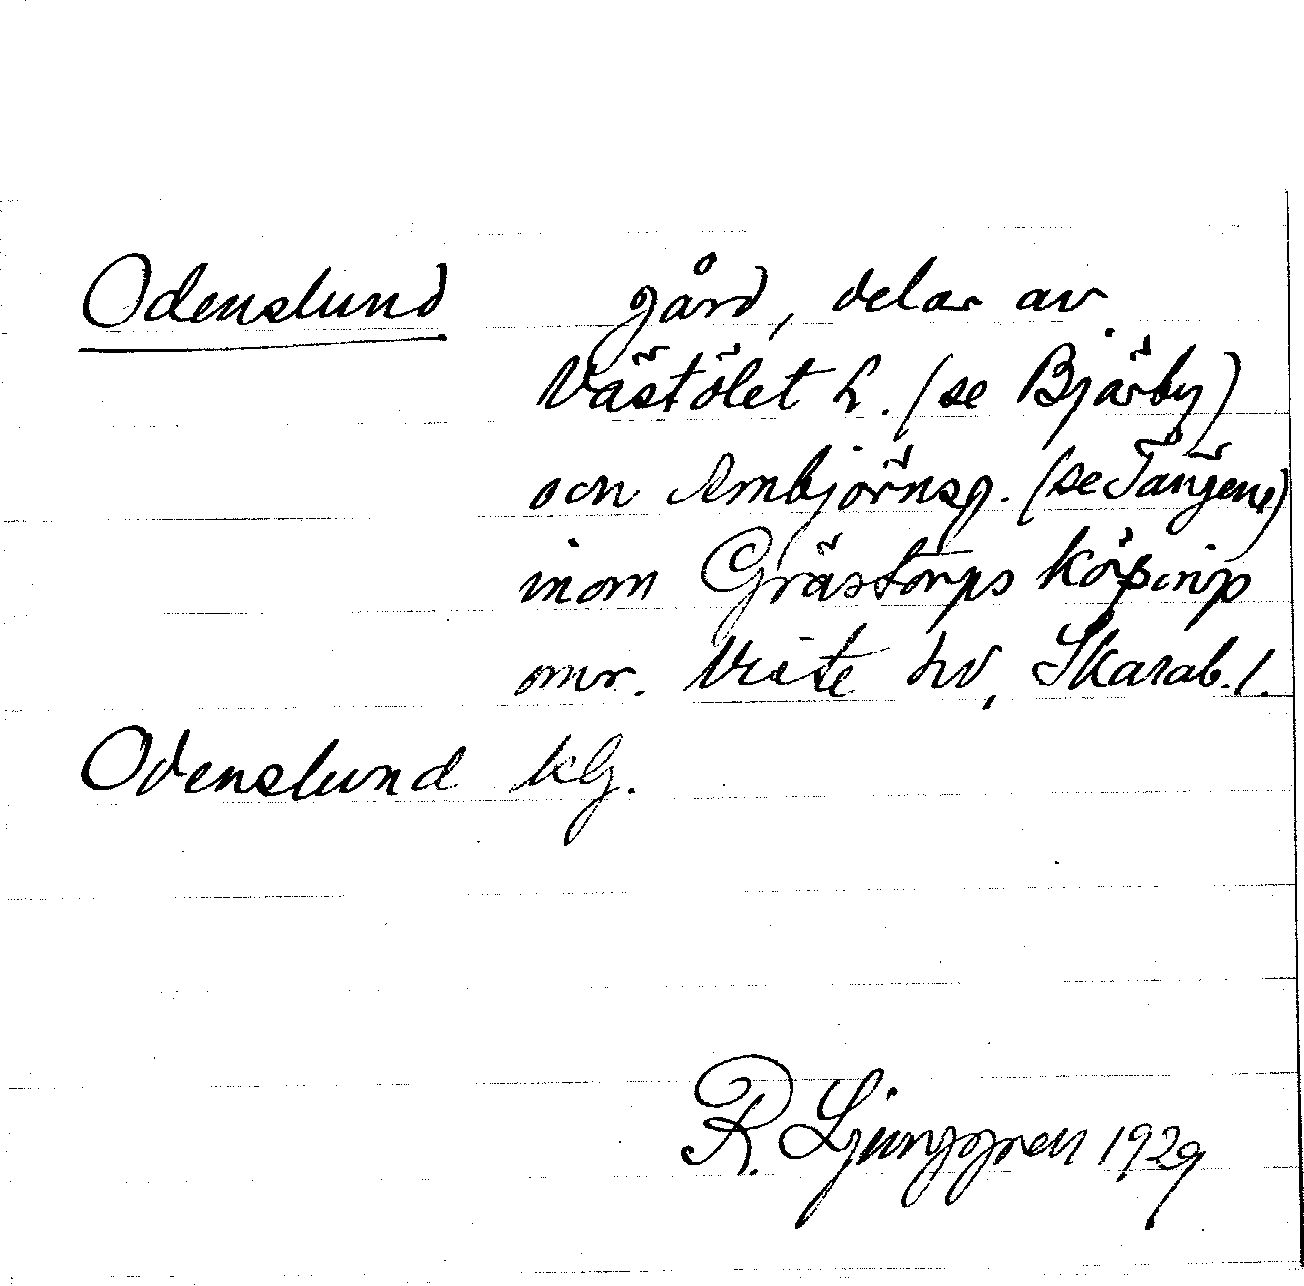 Odenslund gård, delar av
Västölet h. (se Bjärby)
och Ambjörnsg. (se Tängene)
inom Grästorps köpings
omr. Viste hd, Skarab. l.
Odenslund kG.
R. Ljunggren 1929